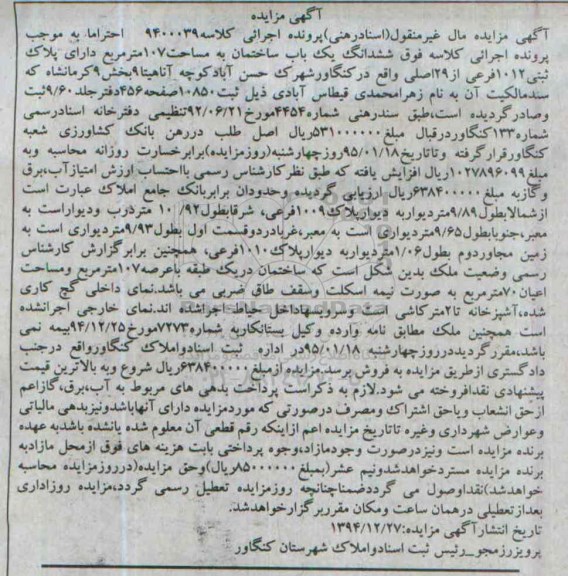 آگهی مزایده
آگهی مزایده مال غیرمنقول(اسنادرهنی)پرونده اجرائی کلاسه۹۴۰۰۰۳۹ احتراما به موجب
پرونده اجرائی کلاسه فوق ششدانگ یک باب ساختمان به مساحت۱۰۷مترمربع دارای پلاک
ثبتی۱۰۱۲فرعی از۲۹اصلی واقع درکنگاورشهرک حسن آبادکوچه آناهیتا۹بخش۹کرمانشاه که
سندمالکیت آن به نام زهرامحمدی قیطاس آبادی ذیل ثبت۱۰۸۵۰صفحه۴۵۶دفترجلد۹/۶۰ثبت
وصادرگردیده است،طبق سندرهنی شماره۴۴۵۴مورخ۹۲/۰۶/۲۱تنظیمی دفترخانه اسنادرسمی
شماره۱۳۳کنگاوردرقبال مبلغ۵۳۱۰۰۰۰۰۰ریال اصل طلب دررهن بانک کشاورزی شعبه
کنگاورقرارگرفته وتاتاریخ۹۵/۰۱/۱۸روزچهارشنبه(روزمزایده)برابرخسارت روزانه محاسبه وبه
مبلغ۱۰۲۷۸۹۶۰۹۹ریال افزایش یافته که طبق نظرکارشناس رسمی بااحتساب ارزش امتیازآب،برق
وگازبه مبلغ۶۳۸۴۰۰۰۰۰ریال ارزیابی گردیده وحدودان برابربانک جامع املاک عبارت است
ازشمالابطول۹/۸۹متردیواربه دیوارپلاک۱۰۰۹فرعی، شرقابطول۱۰/۹۲ متردرب ودیواراست به
معبر،جنوبابطول۹/۶۵متردیواری است به معبر،غربادردوقسمت اول بطول۹/۹۳متردیواری است به
زمین مجاوردوم بطول۱/۰۶متردیواربه دیوارپلاک۱۰۱۰فرعی، همچنین برابرگزارش کارشناس
رسمی وضعیت ملک بدین شکل است که ساختمان دریک طبقه باعرصه۱۰۷مترمربع ومساحت
اعیان۷۰مترمربع به صورت نیمه اسکلت وسقف طاق ضربی می باشد.نمای داخلی گچ کاری
شده،آشپزخانه تا۲مترکاشی است وسرویسهاداخل حیاط اجراشده اند.نمای خارجی اجرانشده
است همچنین ملک مطابق نامه وارده وکیل بستانکاربه شماره۷۲۷۳مورخ۹۴/۱۲/۲۵بیمه نمی
باشد،مقررگردیددرروزچهارشنبه ۹۵/۰۱/۱۸در اداره ثبت اسنادواملاک کنگاورواقع درجنب
دادگستری ازطریق مزایده به فروش برسد.مزایده ازمبلغ۶۳۸۴۰۰۰۰۰ریال شروع وبه بالاترین قیمت
پیشنهادی نقدافروخته می شود.لازم به ذکراست پرداخت بدهی های مربوط به آب،برق،گازاعم
ازحق انشعاب وياحق اشتراک ومصرف درصورتی که موردمزایده دارای آنهاباشدونیزبدهی مالیاتی
وعوارض شهرداری وغیره تاتاریخ مزایده اعم ازاینکه رقم قطعی آن معلوم شده یانشده باشدبه عهده
برنده مزایده است ونیزدرصورت وجودمازاد،وجوه پرداختی بابت هزینه های فوق ازمحل مازادبه
برنده مزایده مستردخواهدشدونیم عشر(بمبلغ۸۵۰۰۰۰۰۰ریال)وحق مزایده(درروزمزایده محاسبه
خواهدشد)نقداوصول می گرددضمناچنانچه روزمزایده تعطیل رسمی گردد،مزایده روزاداری
بعدازتعطیلی درهمان ساعت ومکان مقرربرگزارخواهدشد.
تاریخ انتشارآگهی مزایده:۱۳۹۴/۱۲/۲۷
پرویزرزمجو_رئیس ثبت اسنادواملاک شهرستان کنگاور